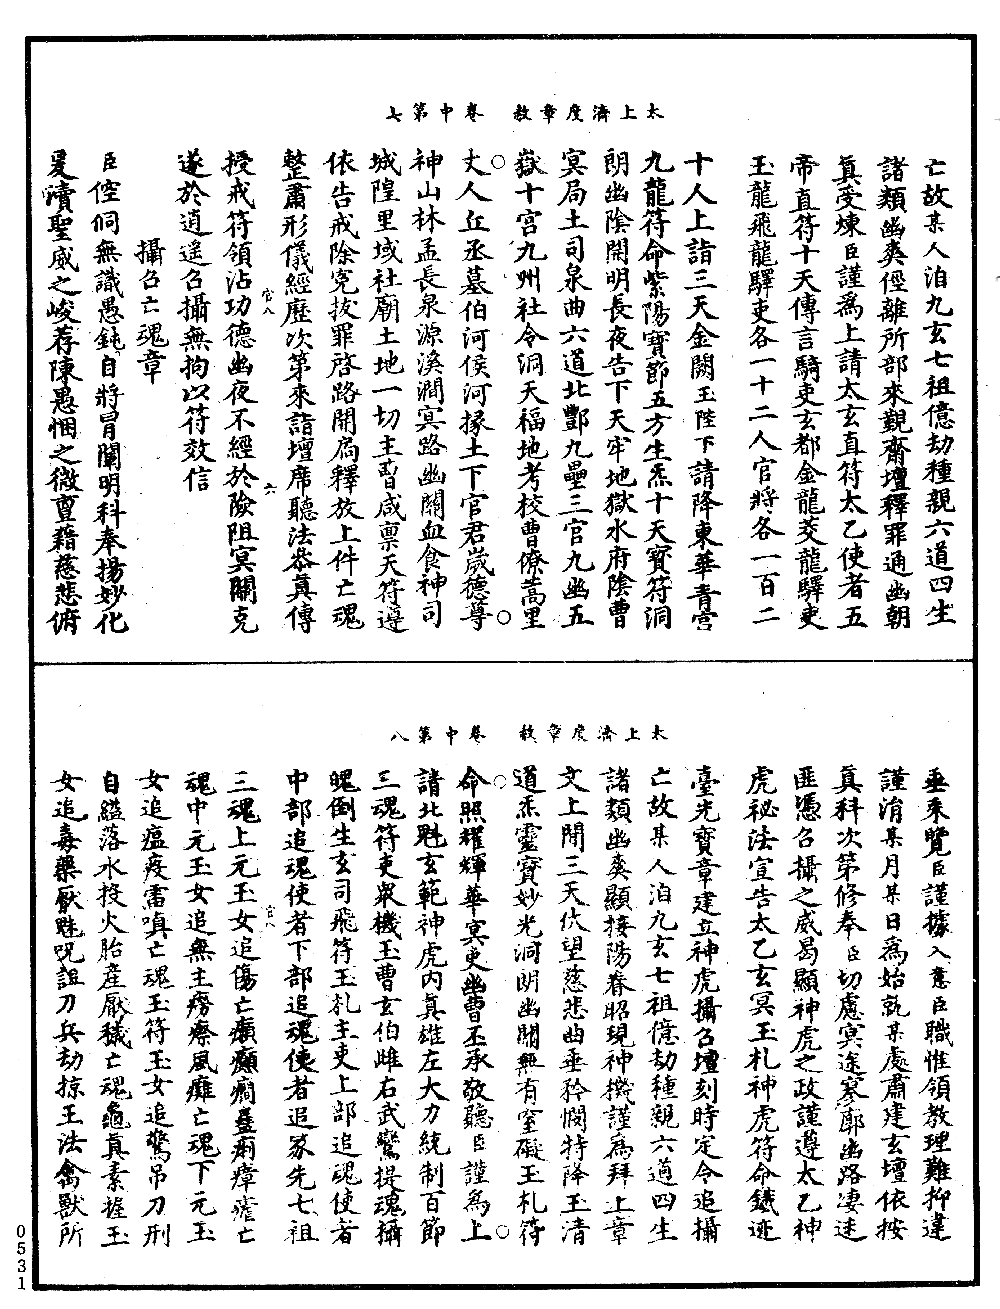 太上濟度章赦　卷中第七
亡故某人洎九玄七祖億劫種親六道四生
諸類幽爽徑離所部來觀齋壇釋罪通幽朝
真受煉臣謹為上請太玄直符太乙使者五
帝直符十天傳言騎吏玄都金龍茭龍驛吏
玉龍飛龍驛吏各一十二人官將各一百二
十人上詣三天金闕玉陛下請降東華青宮
九龍符命紫陽寶節五方生炁十天寶符洞
朗幽陰開明長夜告下天牢地獄水府陰曹
冥局土司泉曲六道北酆九壘三官九幽五
嶽十宮九州社令洞天福地考校曹僚蒿里
丈人丘丞墓伯河侯河掾土下官君歲德尊
神山林孟長泉源溪澗冥路幽關血食神司
城隍里域社廟土地一切主者咸稟天符遵
依告戒除冤拔罪啓路開扃釋放上件亡魂
整肅形儀經歷次第來詣壇席聽法叅真傳
授戒符領沾功德幽夜不經於險阻冥關克
遂於逍遙召攝無拘以符效信
攝召亡魂章
臣倥侗無識愚鈍自將冒闡明科奉揚妙化
夏瀆聖威之峻荐陳愚悃之微亶藉慈悲俯
官八
六
太上濟度章赦　卷中第八
垂釆覽臣謹據入意臣職惟領教理難抑違
謹涓某月某日為始就某處肅建玄壇依按
真科次第修奉臣切慮冥途寥廓幽路凄迷
匪憑召攝之威曷顯神虎之政謹遵太乙神
虎祕法宣告太乙玄冥玉札神虎符命鐵遮
臺光寶章建立神虎攝召壇刻時定令追攝
亡故某人洎九玄七祖億劫種親六道四生
諸類幽爽顯接陽春昭現神機謹為拜上章
文上聞三天伏望慈悲曲垂矜憫特降玉清
道炁靈寶妙光洞朗幽關無有窒礙玉札符
命照耀輝華冥吏幽曹丕承敬聽臣謹為上
請北魁玄範神虎內真雄左大力統制百節
三魂符吏眾機玉曹玄伯雌右武鸞提魂攝
魄倒生玄司飛符玉札主吏上部追魂使者
中部追魂使者下部追魂使者追家先七祖
三魂上元玉女追傷亡癲癇蠱痢瘴瘧亡
魂中元玉女追無主癆瘵風癱亡魂下元玉
女追瘟疫雷嗔亡魂玉符玉女追驚吊刀刑
自縊落水投火胎產厭穢亡魂龜真素搓玉
女追毒藥厭魅呪詛刀兵劫掠王法禽獸所
官八
0531